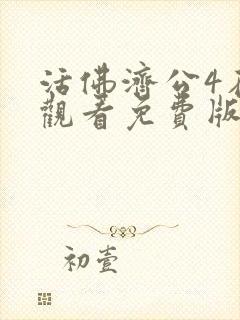 活佛濟公4在
觀看免費版
初壹